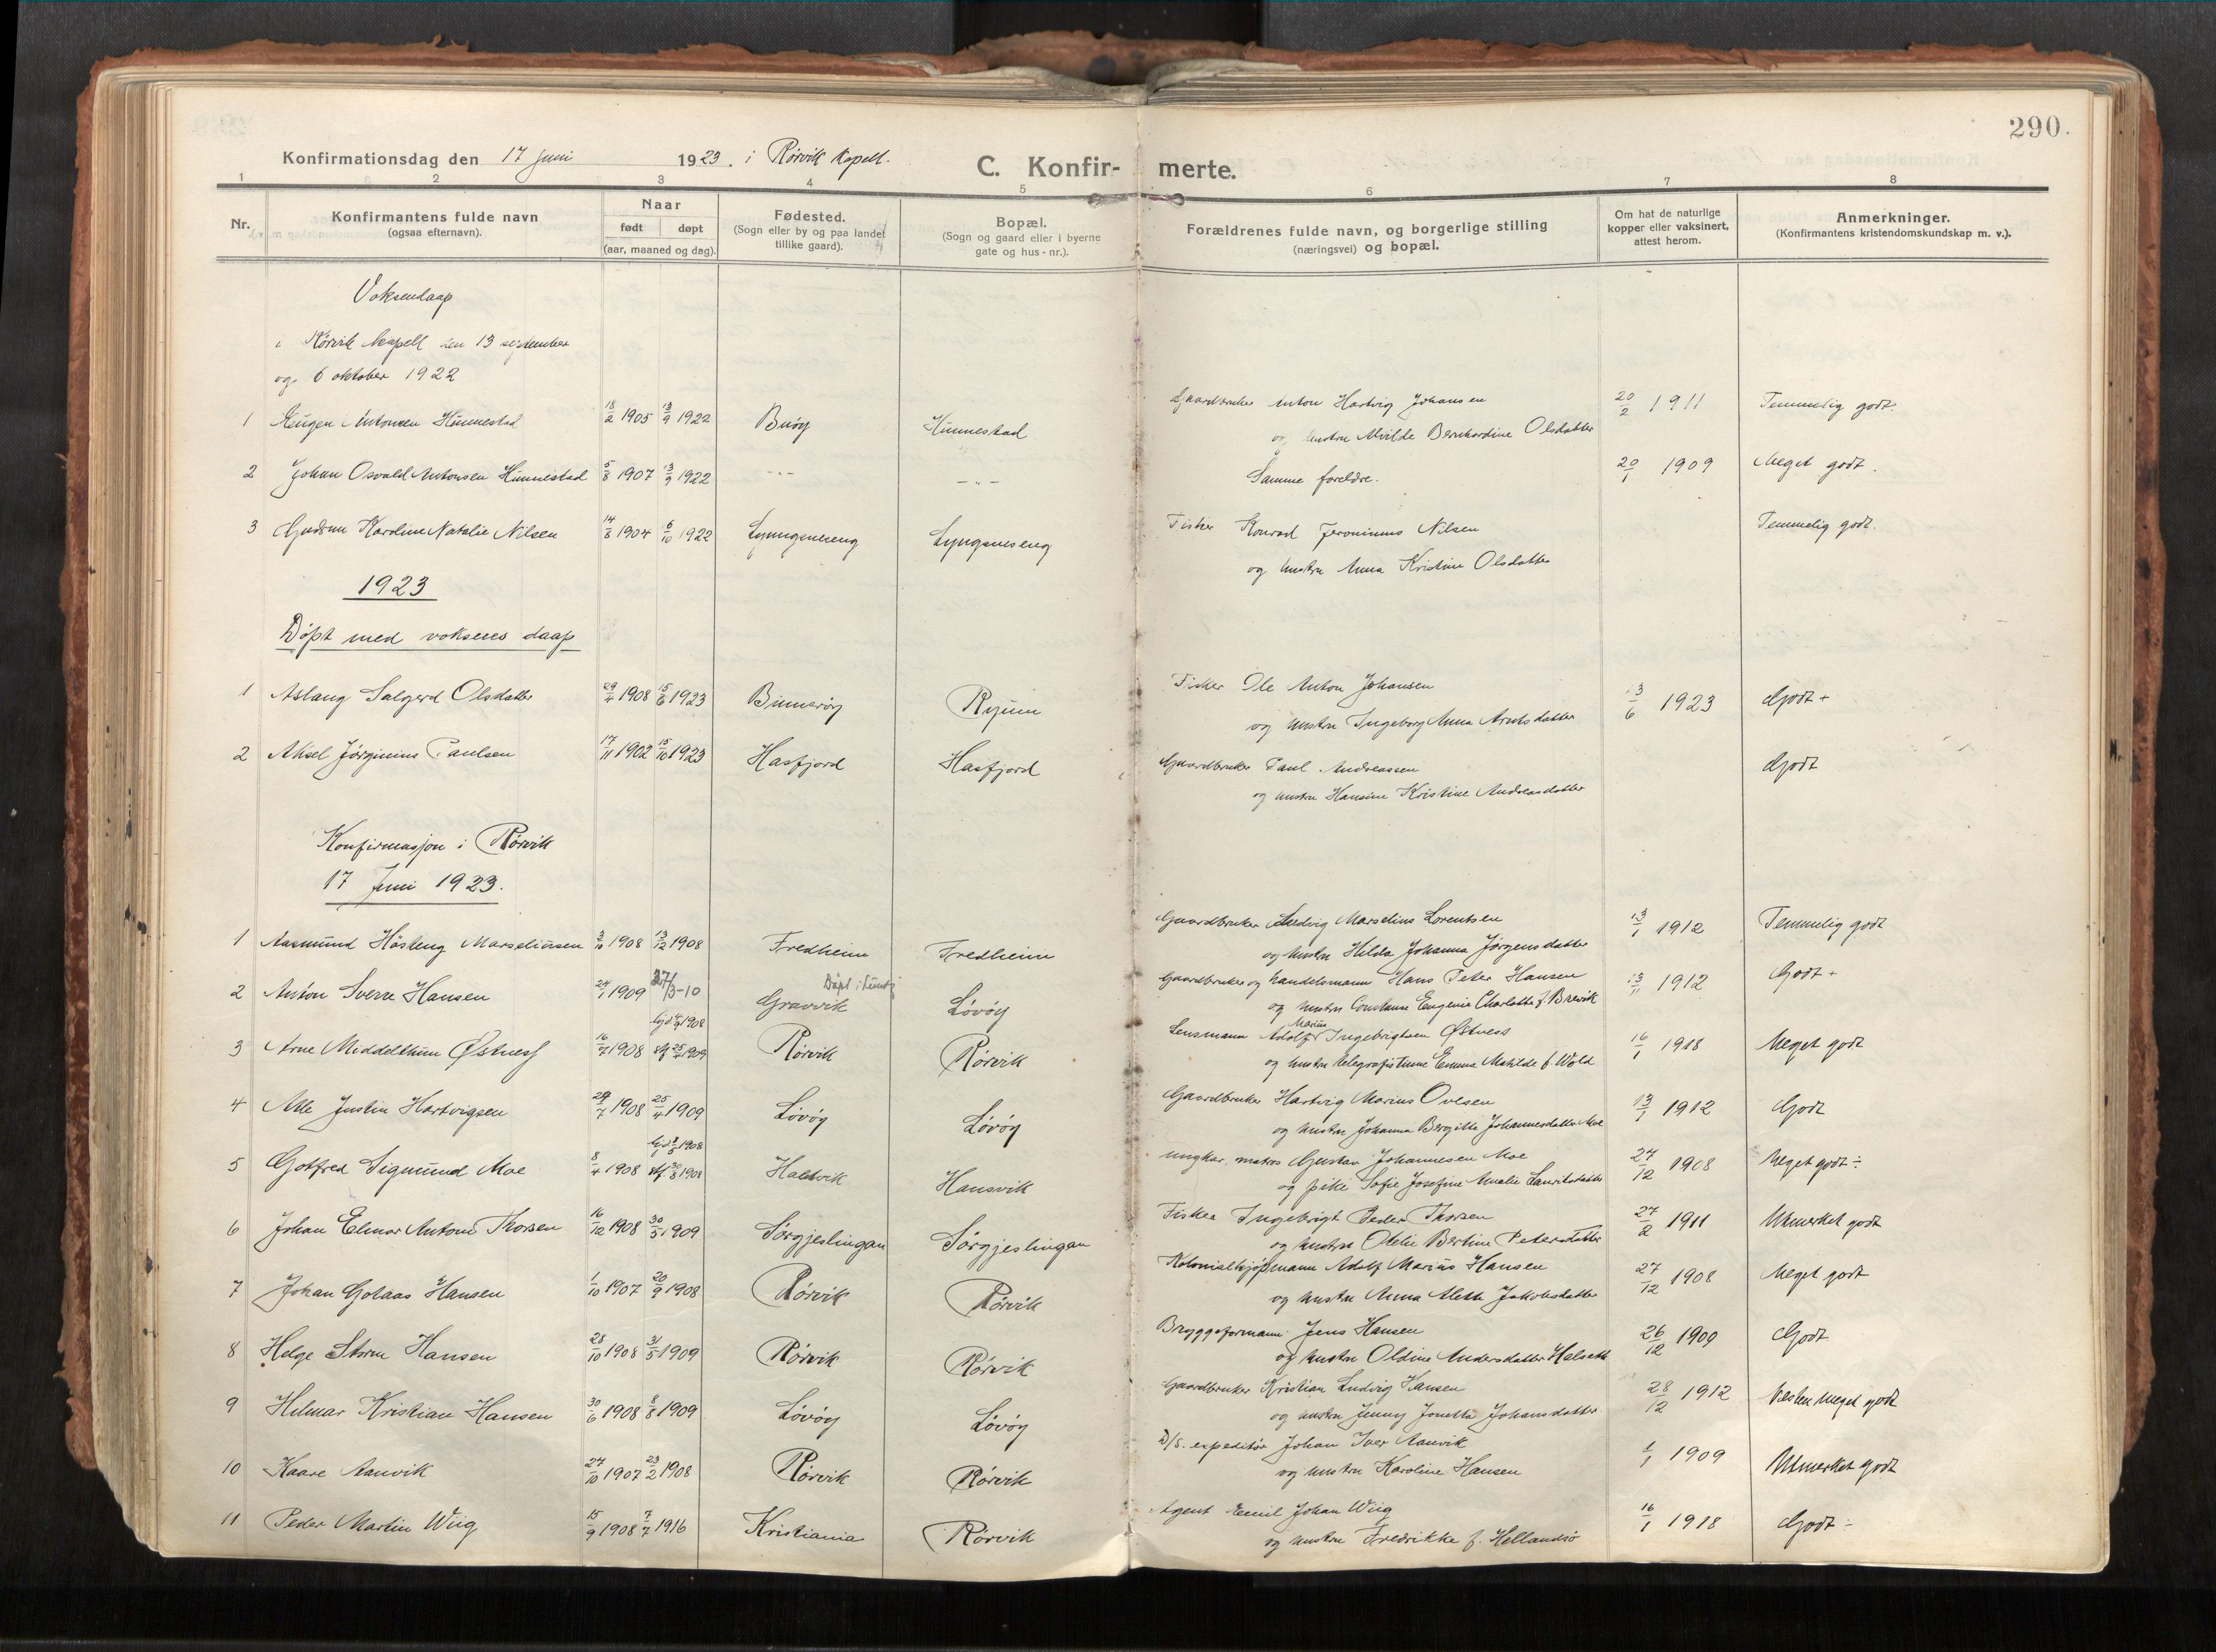 290.
Konfirmationsdag den 17 juni 1923. i Rørvik kapell.
C. Konfir- merte.
1 2 3 4 5 6 7 8
Nr.
Konfirmantens fulde navn
(ogsaa efternavn).
Naar
født døpt
(aar, maaned og dag).
Fødested.
(Sogn eller by og paa landet
tillike gaard).
Bopæl.
(Sogn og gaard eller i byerne
gate og hus-nr.).
Forældrenes fulde navn, og borgerlige stilling
(næringsvei) og bopæl.
Om hat de naturlige
kopper eller vaksinert,
attest herom.
Anmerkninger.
(Konfirmantens kristendomskundskap m. v.).
Voksendaap
i Rørvik kapell den 13 september
og 6 oktober 1922
1 Eugen Antonsen Hunnestad 18/2 1905 13/9 1922 Buøy Hunnestad Gaardbruker Anton Hartvig Johansen 20/2 1911 Temmelig godt.
og hustru Alvilde Bernhardine Olsdatter
2 Johan Osvald Antonsen Hunnestad 5/8 1907 13/9 1922 -"- -"- Samme foreldre. 20/1 1909 Meget godt.
3 Gudrun Karoline Natalie Nilsen 14/8 1904 6/10 1922 Lyngsneseng Lyngsneseng Fisker Konrad Jeronimus Nilsen Temmelig godt.
og hustru Anna Kristine Olsdatter
1923
Døpt med voksenes daap
1 Aslaug Salgerd Olsdatter 29/4 1908 15/6 1923 Binnerøy Ryum Fisker Ole Anton Johansen 3/6 1923 Godt +
og hustru Ingeborg Anna Arntsdatter
2 Aksel Jørginius Paulsen 17/11 1902 15/10 1923 Hasfjord Hasfjord Gaardbruker Paul Andreassen Godt
og hustru Hansine Kristine Andreasdatter
Konfirmasjon i Rørvik
17 Juni 1923.
1 Aasmund Høsteng Marseliusen 3/10 1908 13/12 1908 Fredheim Fredheim Gaardbruker Ludvig Marselius Lorentsen 13/1 1912 Temmelig godt
og hustru Hilda Johanna Jørgensdatter
2 Anton Sverre Hansen 24/1 1909 27/3-10 Døpt i Gravvik Løvøy Gaardbruker og handelsmann Hans Peter Hansen 13/11 1912 Godt +
og hustru Constanse Eugenie Charlotte f. Brevik
3 Arne Middelthun Østness 16/7 1908 1908 stf 25/4 1909 Rørvik Rørvik Lensmann Adolf Marius Ingebrigtsen Østness 16/1 1918 Meget godt
og hustru telegrafistinne Emma Matilde f. Wold
4 Atle Justin Hartvigsen 29/7 1908 25/4 1909 Løvøy Løvøy Gaardbruker Hartvig Marius Ovesen 13/1 1912 Godt
og hustru Johanna Bergitte Johannesdatter Moe
5 Gotfred Sigmund Moe 8/4 1908 1908 stf 30/8 1908 Hansvik Ungkar, matros Gustav Johannesen Moe 24/12 1908 Meget godt ÷
og pike Sofie Josefine Amalie Lauritsdatter
6 Johan Elmar Antoni Thorsen 16/12 1908 30/5 1909 Sørgjeslingan Sørgjeslingan Fisker Ingebrigt Peder Thorsen 27/2 1911 Utmerket godt
og hustru Otelie Bertine Petersdatter
7 Johan Golaas Hansen 1/10 1907 20/9 1908 Rørvik Rørvik Kolonialkjøpmann Adolf Marius Hansen 27/12 1908 Meget godt
og hustru Anna Aletta Jakobsdatter
8 Helge Storm Hansen 28/10 1908 31/5 1909 Rørvik Rørvik Bryggeformann Jens Hansen 26/12 1909 Godt
og hustru Oldine Andersdatter Halseth
9 Hilmar Kristian Hansen 30/6 1908 8/8 1909 Løvøy Løvøy Gaardbruker Kristian Ludvig Hansen 28/12 1912 Næsten meget godt
og hustru Jenny Jonetta Johansdatter
10 Kaare Aanvik 24/10 1907 23/2 1908 Rørvik Rørvik D/S. expeditør Johan Iver Aanvik 1/1 1909 Utmerket godt
og hustru Karoline Hansen
11 Peder Martin Wiig 15/9 1908 7/7 1916 Kristiania Rørvik Agent Emil Johan Wiig 16/1 1918 Godt ÷
og hustru Fredrikke f. Hellandsjø